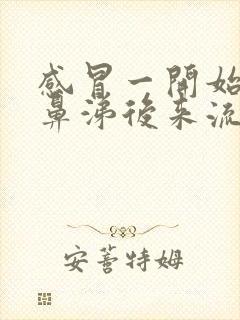 感冒一開始
鼻涕後來流
安蓍特姆